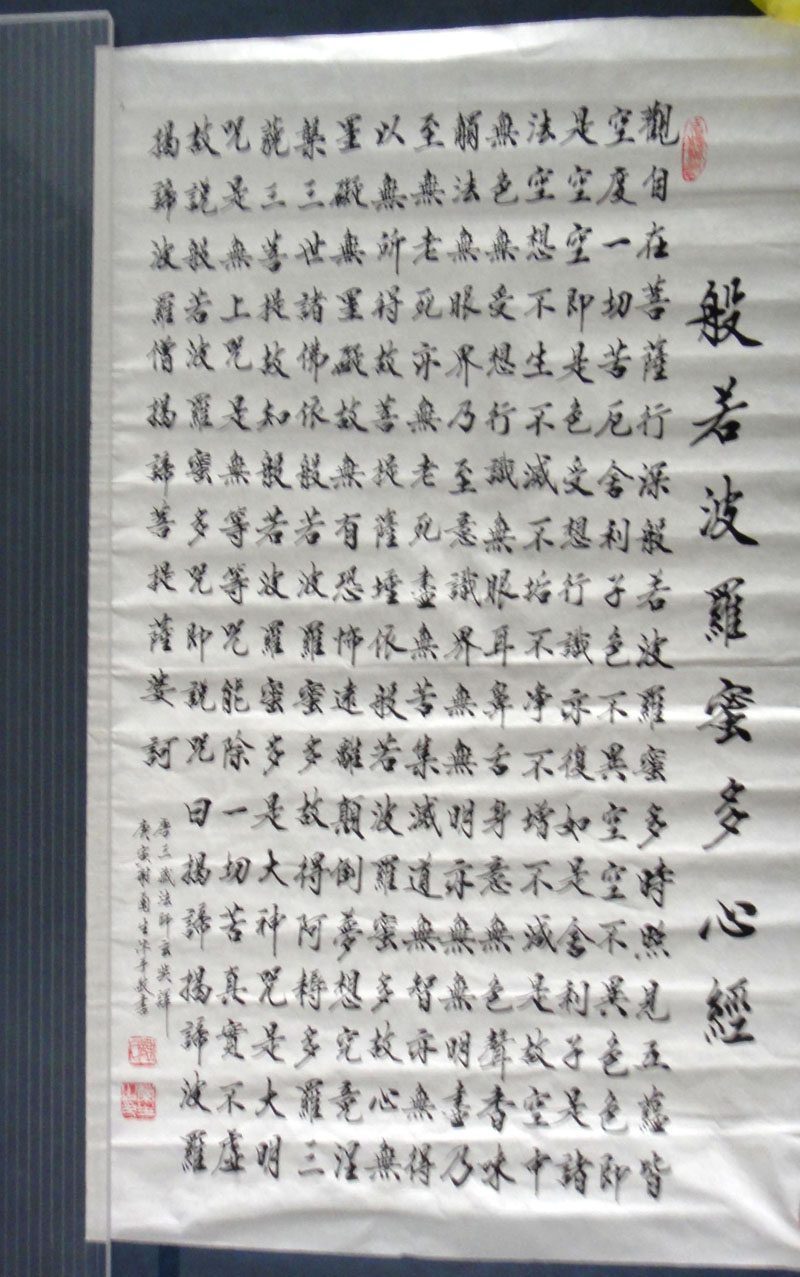 般若波羅蜜多心經
觀自在菩薩行深般若波羅蜜多時照見五蘊皆
空度一切苦厄舍利子色不異空空不異色色即
是空空即是色受想行識亦復如是舍利子是諸
法空想不生不滅不垢不淨不增不減是故空中
無色無受想行識無眼耳鼻舌身意無色聲香味
觸法無眼界乃至意識界無無明亦無無明盡乃
至無老死亦無老死盡無苦集滅道無智亦無得
以無所得故菩提薩埵依般若波羅蜜多故心無
罣礙無罣礙故無有恐怖遠離顛倒夢想究竟涅
槃三世諸佛依般若波羅蜜多故得阿耨多羅三
藐三菩提故知般若波羅蜜多是大神咒是大明
咒是無上咒是無等等咒能除一切苦真實不虛
故說般若波羅蜜多咒即說咒曰揭諦揭諦波羅
揭諦波羅僧揭諦菩提薩婆訶
唐三藏法師玄奘譯
庚寅謝生沐手敬書